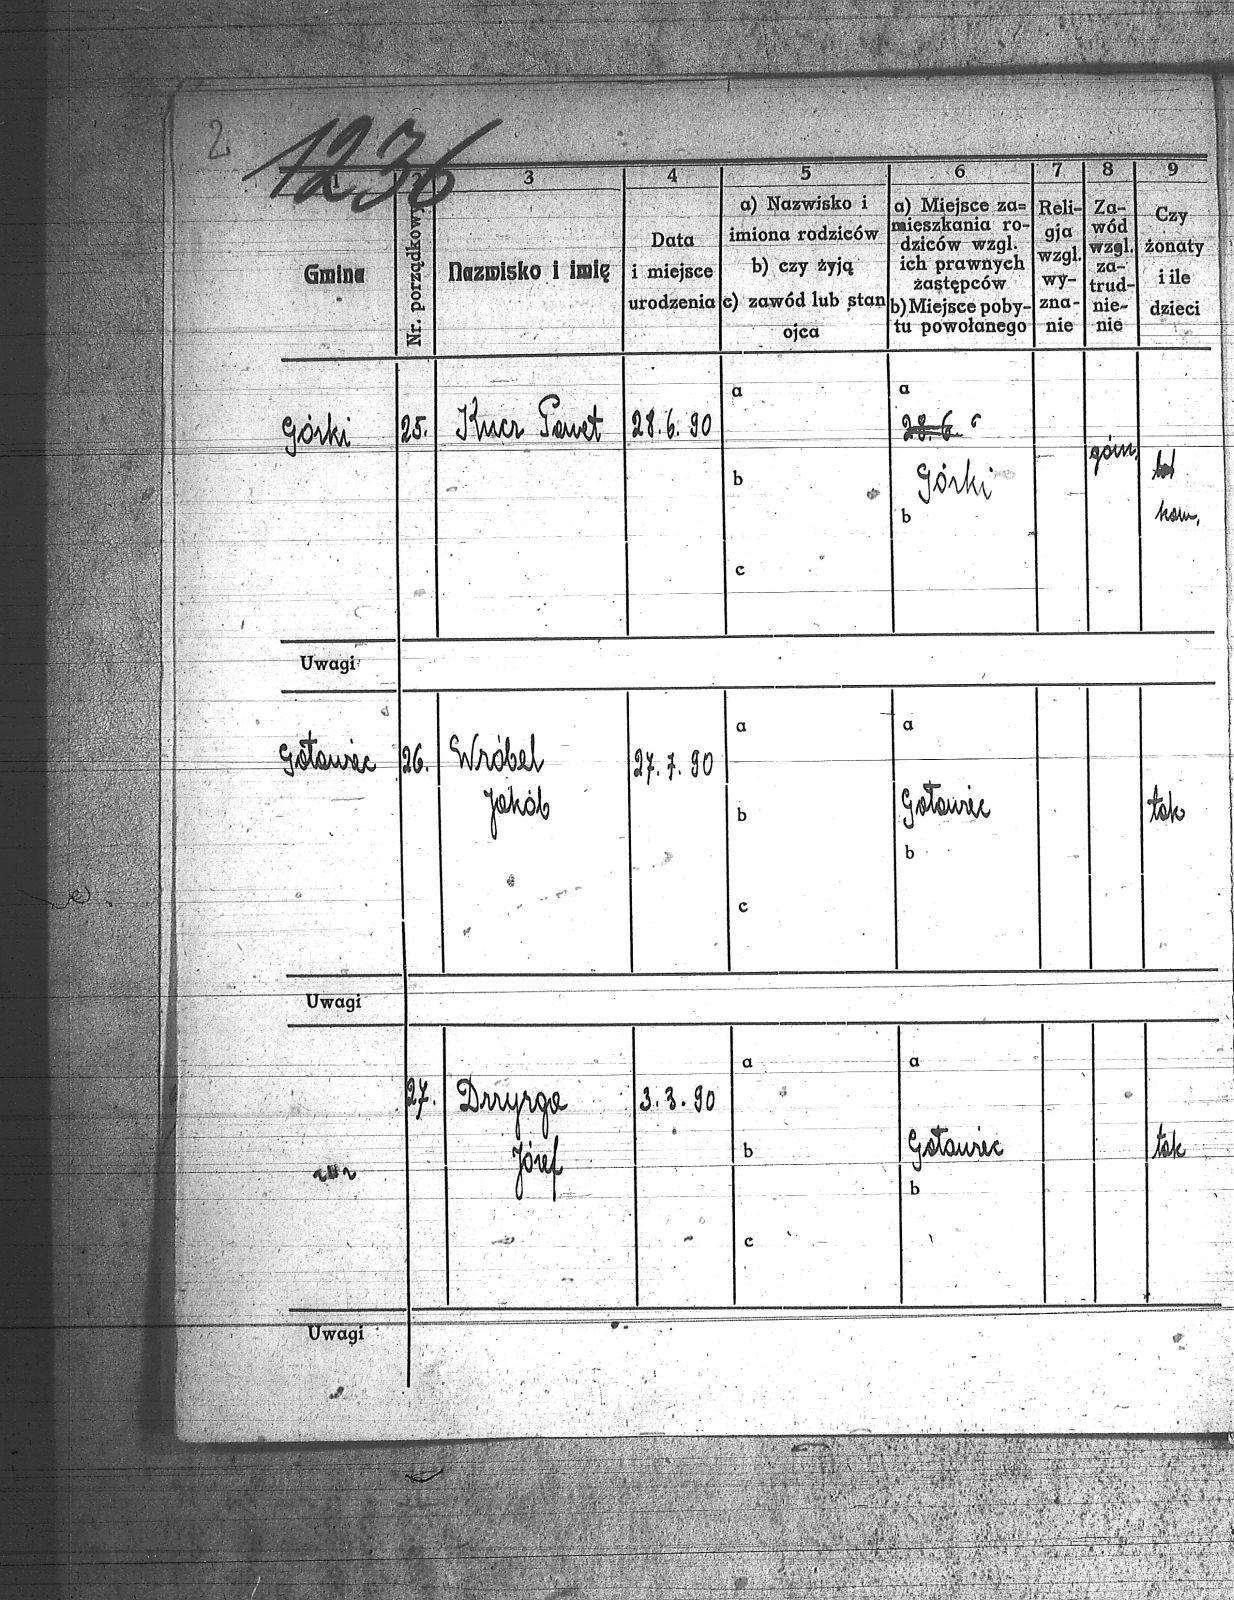 2
1236
1
2
3
4
5
6
7
8
9
Gmina
Nr. porządkowy
Nazwisko i imię
Data
i miejsce
urodzenia
a) Nazwisko i
imiona rodziców
b) czy żyją
c) zawód lub stan
ojca
a) Miejsce za=
mieszkania ro-
dziców wzgl.
ich prawnych
zastępców
b) Miejsce poby-
tu powołanego
Reli-
gja
wzgl.
wy-
zna-
nie
Za-
wód
wzgl.
za-
trud-
nie-
nie
Czy
żonaty
i ile
dzieci
Górki
25.
Kucz Paweł
28.6.90
a
b
c
a
28.6.
Górki
b
górn.
kaw.
Uwagi
Goławiec
26.
Wróbel
Jakób
27.7.90
a
b
c
a
Goławiec
b
tak
Uwagi
27.
Drryrga
Józef
3.3.90
a
b
c
a
Goławiec
b
tak
Uwagi